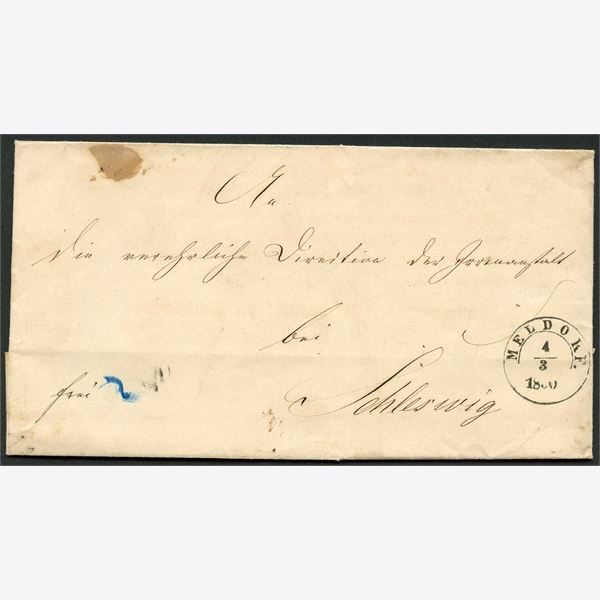 An
die verehrliche Direction der Irrenanstalt
bei
Schleswig
frei
MELDORF.
4
3